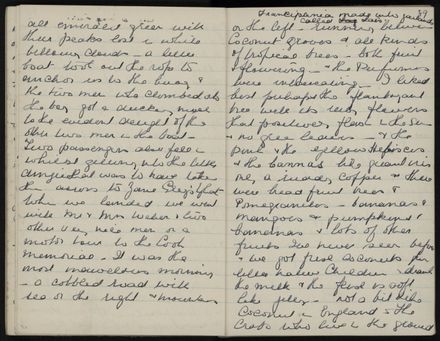 all emerald green with
three peaks lost in white
billowy clouds - a little
boat took out the rope to
anchor us to the buoy &
the two men who climbed onto
the buoy got a ducking much
to the evident delight of the
other two men in the boat -
Two passengers also fell in
whilst getting into the little
which was to have taken
them across to Zane Grey's
When we landed we went
with Mr & Mrs Weber & two
other very nice men in a
motor tour to the Cook
memorial - It was the
most marvellous morning
- a cobbled road with
sea on the right & mountains
Frangipania made into garlands 89
called
on the left - running between
Coconut groves & all kinds
of tropical trees - both fruit
& flowering - the Perfumes
were intoxicating - I liked
best perhaps the flamboyant
tree with its red flowers
that positively flare in the sun
& no green leaves - & the
pink & the yellow Hibiscus
& the bananas like giant
coffee & there
were bread fruit trees &
Pomegranates - bananas &
mangoes & pumpkins &
bananas & lots of other
fruits I've never seen before
& we got fresh coconuts from
little native children & drank
the milk & the flesh is soft
like jelly - not a bit like
Coconut in England & the
Crabs who live in the ground